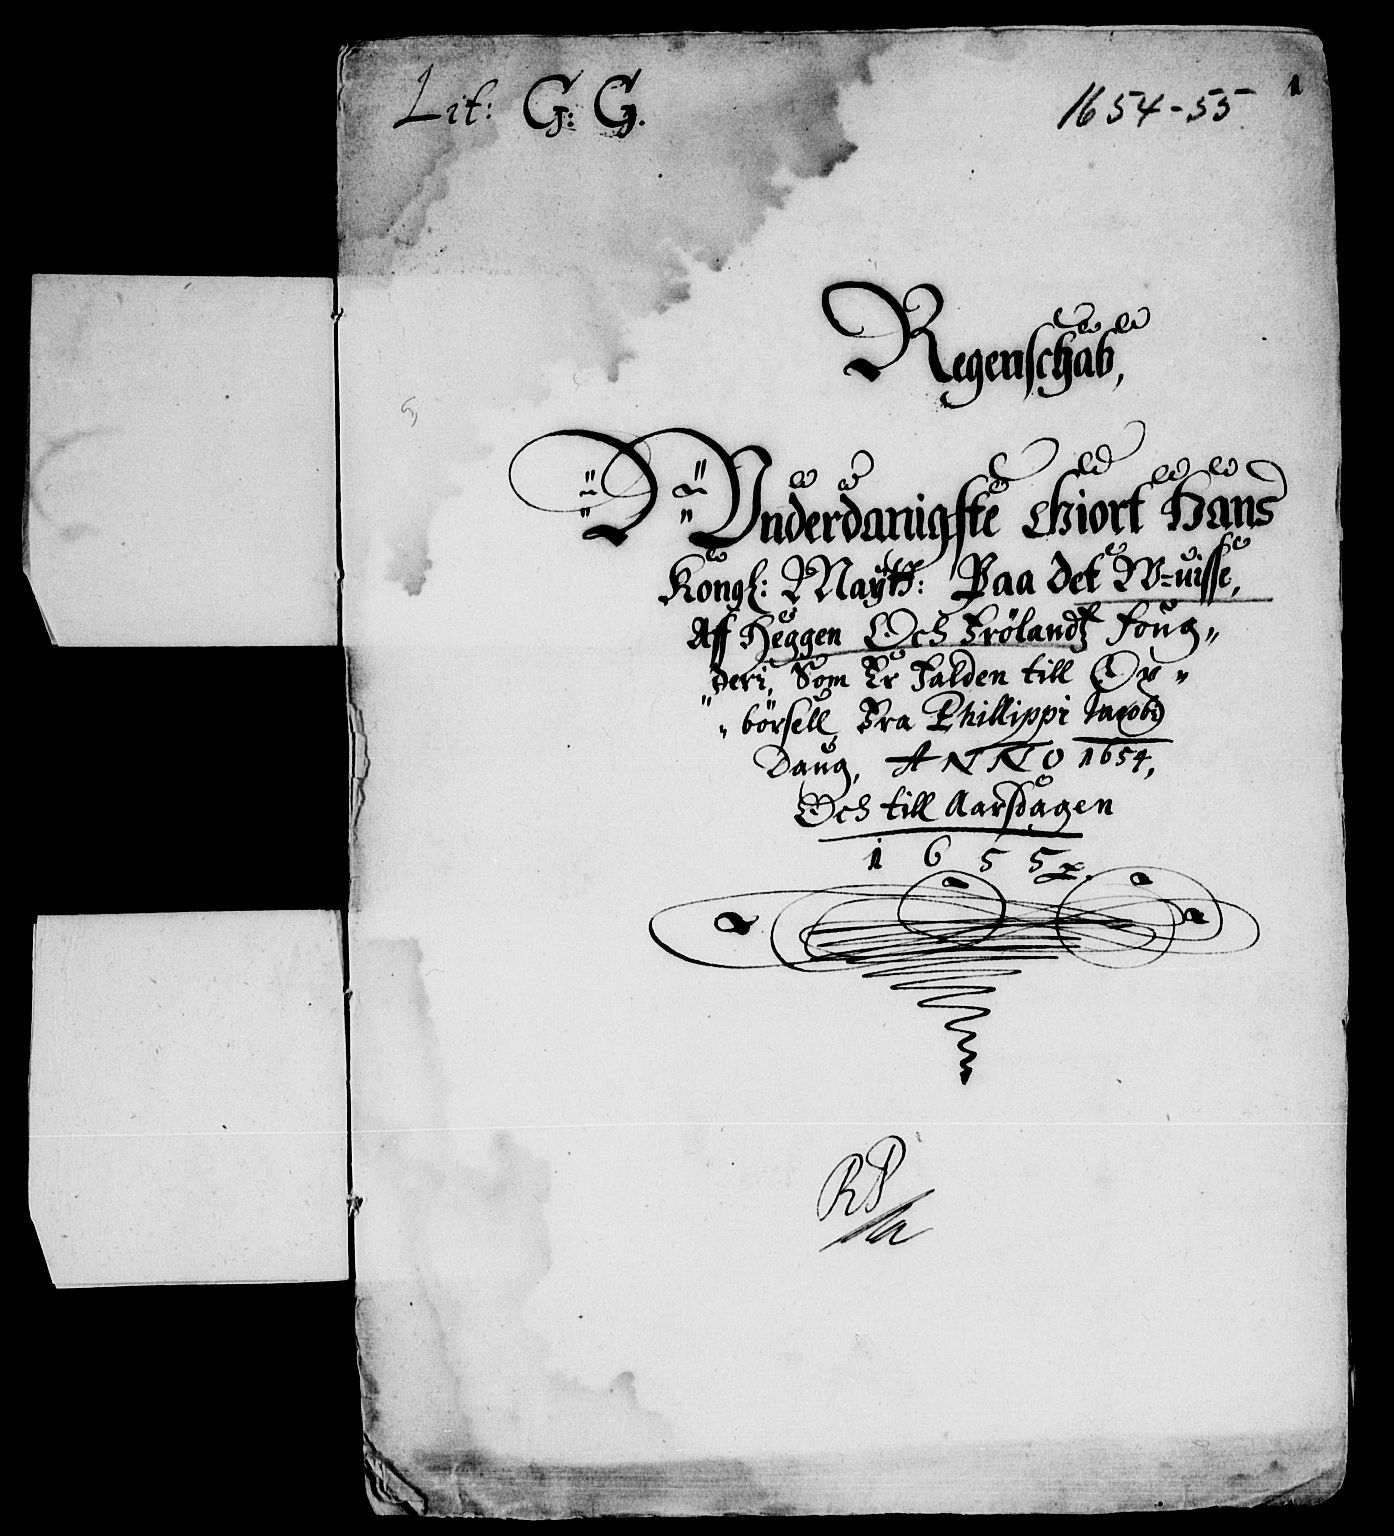 Lit: G: G.
1654-55
1
Regenschab,
Vnderdanigste Giort Hans
Kongl: Maytt: Paa det W-uisse,
Aff Heggen Och Frölandtz foug"
"deri, Som Er Falden till Op"
"börsell, Fra Phillippi Jacobj
Daug, ANNO 1654,
Och till Aarsdagen
1655